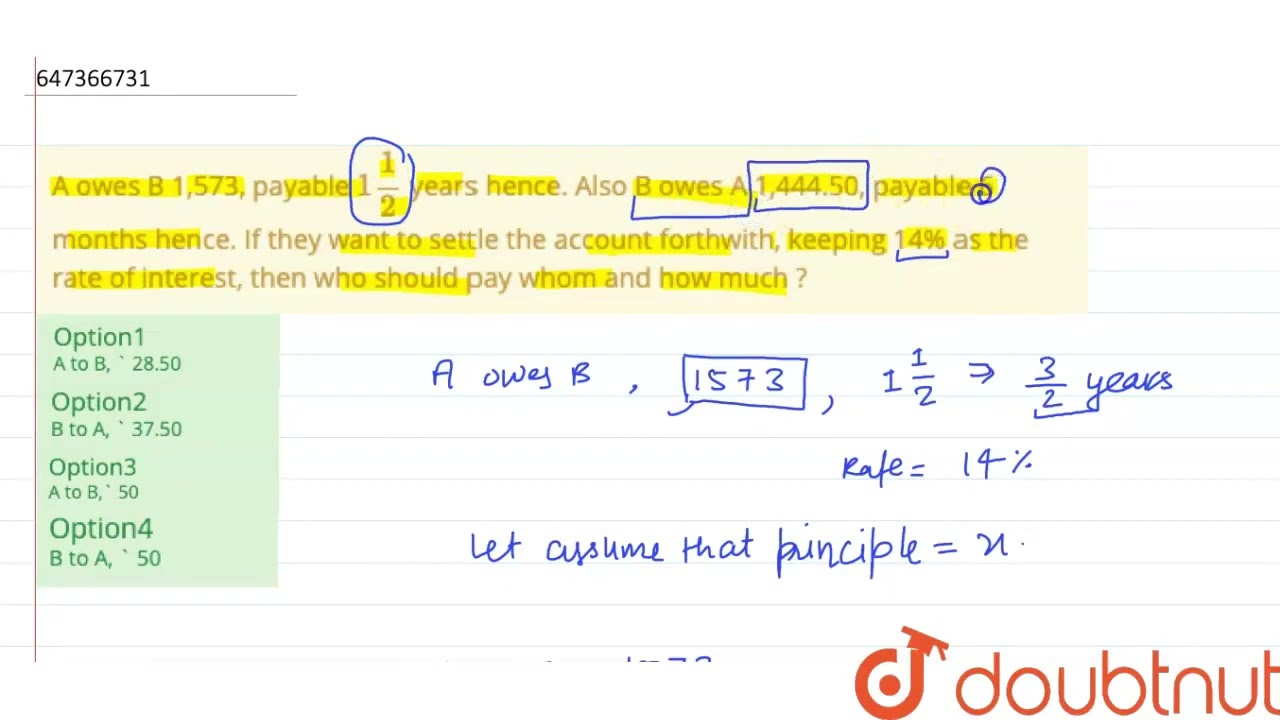 647366731
A owes B 1,573, payable 1 1/2 years hence. Also B owes A 1,444.50, payable
months hence. If they want to settle the account forthwith, keeping 14% as the
rate of interest, then who should pay whom and how much ?
Option1
A to B, ` 28.50
Option2
B to A, ` 37.50
Option3
A to B,` 50
Option4
B to A, ` 50
A owes B , 1573 , 1 1/2 ⇒ 3/2 years
Rate = 14 %
Let assume that principle = x.
doubtnut